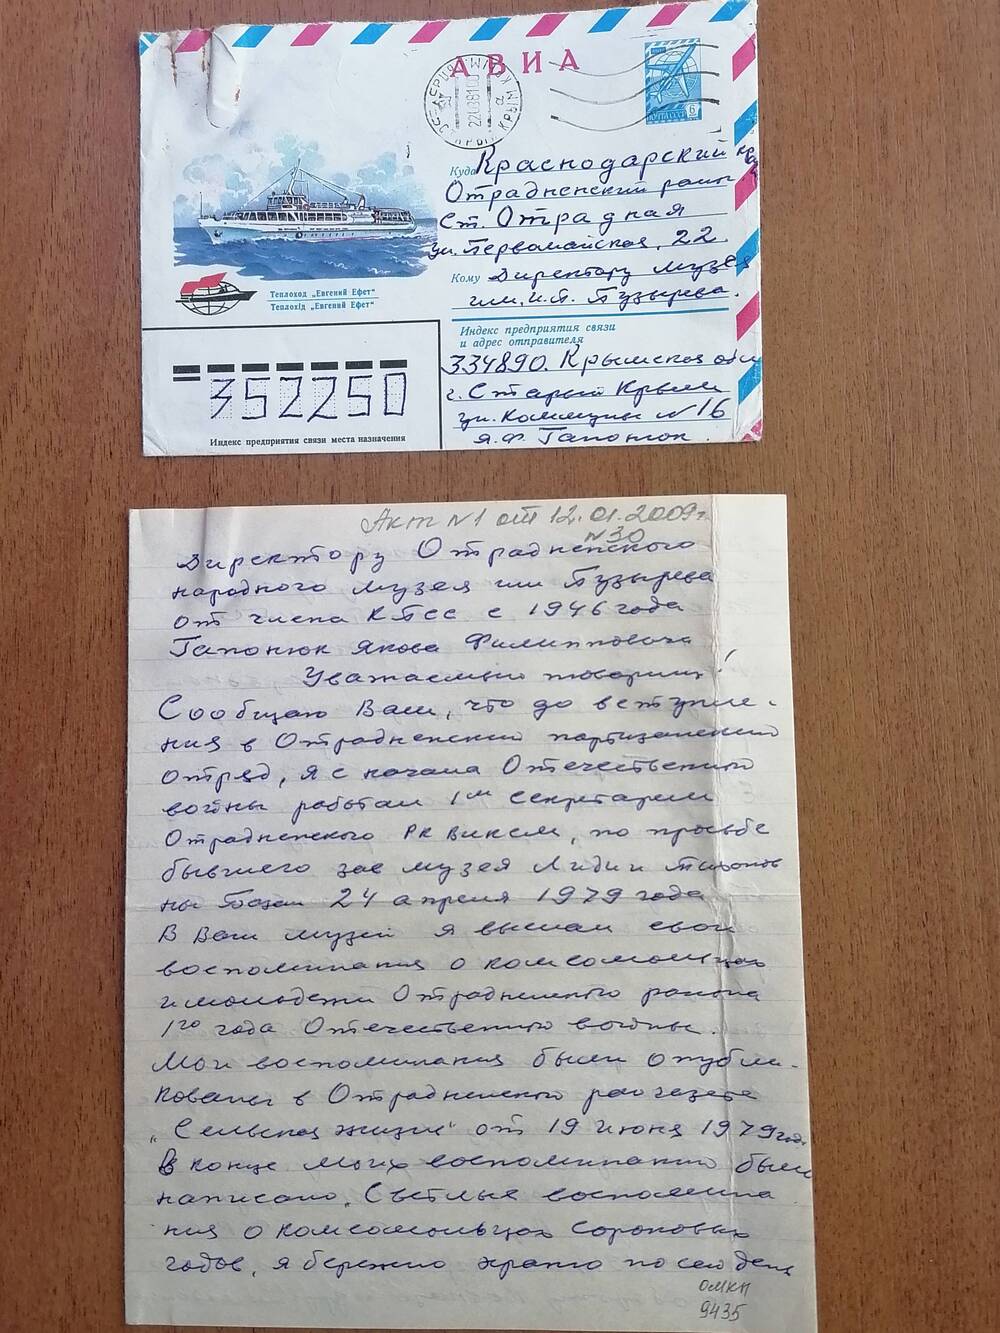 АВИА
ПОЧТА СССР
6
22.03.81
СТАРЫЙ КРЫМ
Куда Краснодарский кр
Отрадненский район
Ст. Отрадная
ул. Первомайская, 22.
Кому Директору Музея
им. И.П. Пузырева.
Теплоход „Евгений Ефет“
Теплохід „Евгений Ефет“
Индекс предприятия связи
и адрес отправителя
334890. Крымская обл
г. Старый Крым
ул. Коммуны N 16
Я.Ф. Гапонюк.
352250
Индекс предприятия связи места назначения
Акт N1 от 12.01.2009г.
N30
Директору Отрадненского
народного музея им Пузырева
от члена КПСС с 1946 года
Гапонюк Якова Филипповича
Уважаемый товарищ!
Сообщаю Вам, что до вступле-
ния в Отрадненский партизанский
отряд, я с начала Отечественной
войны работал 1м секретарем
Отрадненского РК ВЛКСМ, по просьбе
бывшего зав музея Лидии
24 апреля 1979 года
В Ваш музей я выслал свои
воспоминания о комсомольцах
и молодежи Отрадненского района
1го года Отечественной войны.
Мои воспоминания были опубли-
кованы в Отрадненской райгазете
„Сельская жизнь“ от 19 июня 1979 года
В конце моих воспоминаний было
написано. Светлые воспомина
ния о комсомольцах сороковых
годов, я бережно храню по сей день
ОМКП
9435